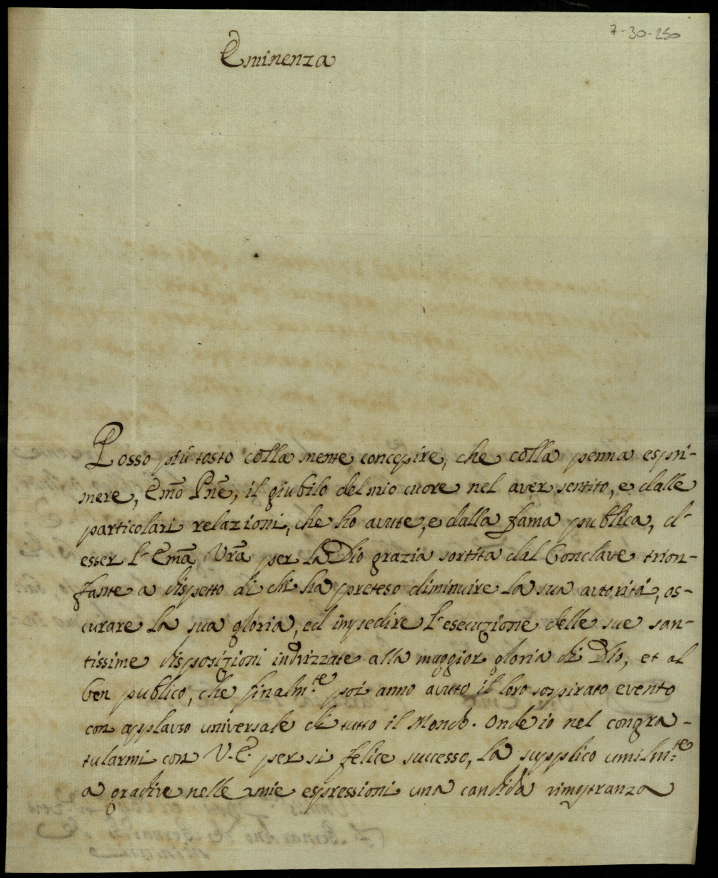 7-30-250
Eminenza
Posso più tosto colla mente concepire, che colla penna espri-
mere, Emo Pne, il giubilo del mio cuore nel aver sentito, e dalle
particolari relazioni, che ho avute, e dalla fama publica, d'
esser l'Ema Vra per la Dio grazia sortita dal Conclave trion-
fante a dispetto di chi ha preteso diminuire la sua autorità, os-
curare la sua gloria, ed impedire l'esecuzione delle sue san-
tissime disposizioni indirizzate alla maggior gloria di Dio, et al
ben publico, che finalm.te poi anno avuto il loro sospirato evento
con applauso universale di tutto il Mondo. Onde io nel congra-
tularmi con V.E. per si felice successo, la supplico umilm.te
a gradire nelle mie espressioni una candida rimostranza